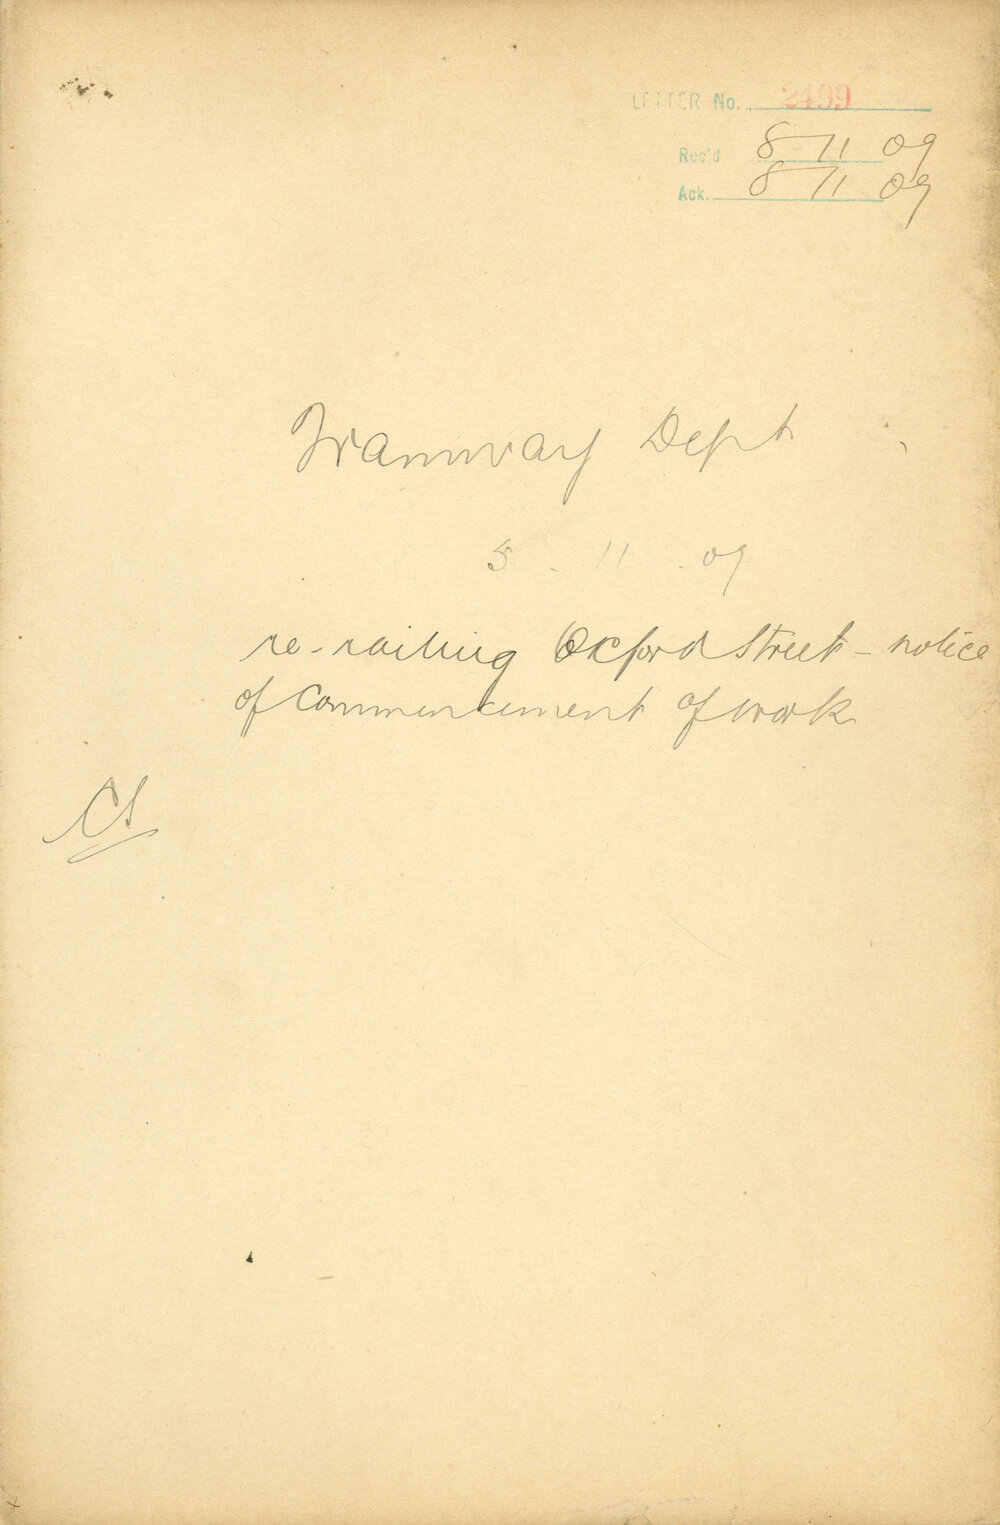 LETTER No. 2499
Rec'd 8 11 09
Ack. 8 11 09
Tramway Dept
5. 11. 09
re-railing Oxford Street - notice
of commencement of work
CS